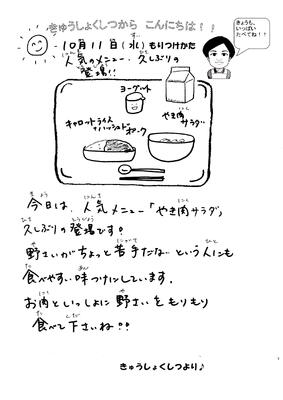 きゅうしょくしつから こんにちは!!
きょうも、
いっぱい
たべてね!!
10月11日(水)もりつけかた
人気のメニュー、久しぶりの
登場!!
ヨーグット
キャロットライス
ハッシュドポーク
やき肉
サラダ
今日は、人気メニュー「やき肉サラダ」
久しぶりの登場です?
野さいがちょっと苦手だな という人にも
食べやすい味つけにしています。
お肉といっしょに野さいをもりもり
食べて下さいね!!
きゅうしょくしつより♪